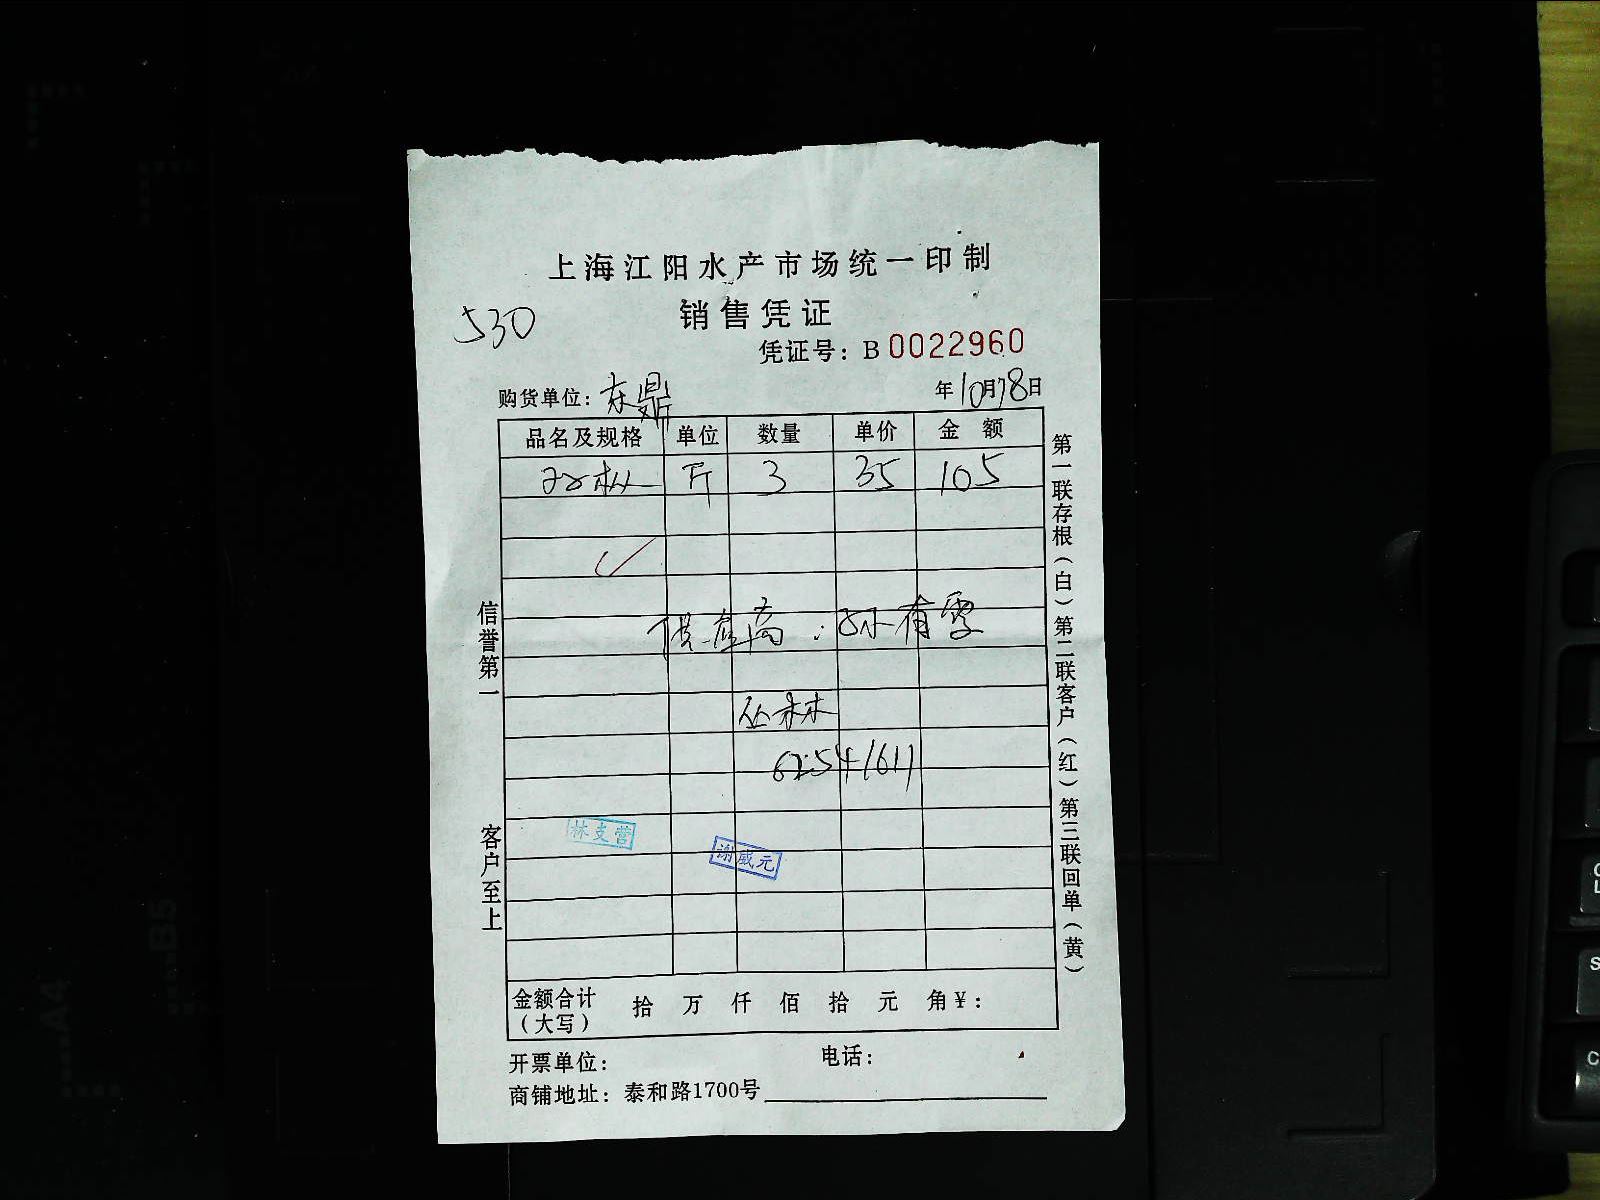 上海江阳水产市场统一印制
销售凭证
530
凭证号：B 0022960
购货单位：东鼎
年10月18日
品名及规格 单位 数量 单价 金额
斤 3 35 105
供应商：孙有雪
丛林
62541611
林支营
谢威元
信誉第一
客户至上
第一联存根（白）第二联客户（红）第三联回单（黄）
金额合计（大写） 拾 万 仟 佰 拾 元 角 ¥：
开票单位： 电话：
商铺地址：泰和路1700号